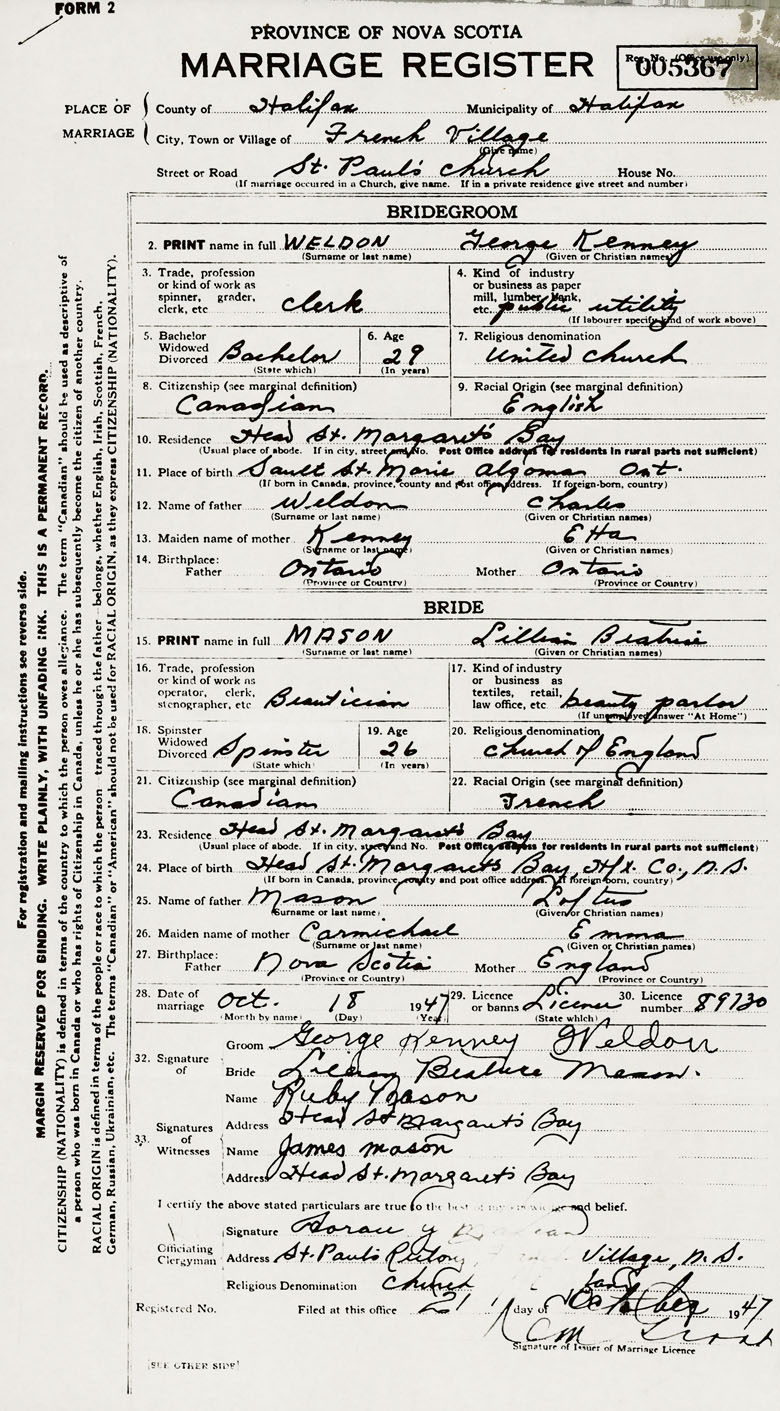 FORM 2
PROVINCE OF NOVA SCOTIA
MARRIAGE REGISTER
Reg. No. (Office use only)
005367
PLACE OF MARRIAGE
County of Halifax Municipality of Halifax
City, Town or Village of French Village
(Give name)
Street or Road St. Paul's Church House No.
(If marriage occurred in a Church, give name. If in a private residence give street and number)
BRIDEGROOM
2. PRINT name in full WELDON George Kenney
(Surname or last name) (Given or Christian names)
3. Trade, profession or kind of work as spinner, grader, clerk, etc clerk
4. Kind of industry or business as paper mill, lumber, bank, etc. public utility
(If labourer specify kind of work above)
5. Bachelor Widowed Divorced Bachelor
(State which)
6. Age 29
(In years)
7. Religious denomination United Church
8. Citizenship (see marginal definition) Canadian
9. Racial Origin (see marginal definition) English
10. Residence Head St. Margaret's Bay
(Usual place of abode. If in city, street and No. Post Office address for residents in rural parts not sufficient)
11. Place of birth Sault St. Marie Algoma Ont.
(If born in Canada, province, county and post office address. If foreign-born, country)
12. Name of father Weldon Charles
(Surname or last name) (Given or Christian names)
13. Maiden name of mother Kenney Etta
(Surname or last name) (Given or Christian names)
14. Birthplace: Father Ontario Mother Ontario
(Province or Country) (Province or Country)
BRIDE
15. PRINT name in full MASON Lillian Beatrice
(Surname or last name) (Given or Christian names)
16. Trade, profession or kind of work as operator, clerk, stenographer, etc Beautician
17. Kind of industry or business as textiles, retail, law office, etc beauty parlor
(If unemployed answer "At Home")
18. Spinster Widowed Divorced Spinster
(State which)
19. Age 26
(In years)
20. Religious denomination Church of England
21. Citizenship (see marginal definition) Canadian
22. Racial Origin (see marginal definition) French
23. Residence Head St. Margaret's Bay
(Usual place of abode. If in city, street and No. Post Office address for residents in rural parts not sufficient)
24. Place of birth Head St. Margaret's Bay, Hfx. Co., N.S.
(If born in Canada, province, county and post office address. If foreign-born, country)
25. Name of father Mason Loftus
(Surname or last name) (Given or Christian names)
26. Maiden name of mother Carmichael Emma
(Surname or last name) (Given or Christian names)
27. Birthplace: Father Nova Scotia Mother England
(Province or Country) (Province or Country)
28. Date of marriage Oct. 18 1947
(Month by name) (Day) (Year)
29. Licence or banns License
(State which)
30. Licence number 89730
32. Signature of
Groom George Kenney Weldon
Bride Lillian Beatrice Mason.
33. Signatures of Witnesses
Name Ruby Mason
Address Head St Margaret's Bay
Name James Mason
Address Head St. Margaret's Bay
I certify the above stated particulars are true to the best of my knowledge and belief.
Officiating Clergyman
Signature
Address St. Paul's Rectory, Village, N.S.
Religious Denomination Church
Registered No. Filed at this office 21 day of October 1947
Signature of Issuer of Marriage Licence
[SEE OTHER SIDE]
For registration and mailing instructions see reverse side.
MARGIN RESERVED FOR BINDING. WRITE PLAINLY, WITH UNFADING INK. THIS IS A PERMANENT RECORD.
CITIZENSHIP (NATIONALITY) is defined in terms of the country to which the person owes allegiance. The term "Canadian" should be used as descriptive of
a person who was born in Canada or who has rights of Citizenship in Canada, unless he or she has subsequently become the citizen of another country.
RACIAL ORIGIN is defined in terms of the people or race to which the person traced through the father belongs, whether English, Irish, Scottish, French,
German, Russian, Ukrainian, etc. The terms "Canadian" or "American" should not be used for RACIAL ORIGIN, as they express CITIZENSHIP (NATIONALITY).